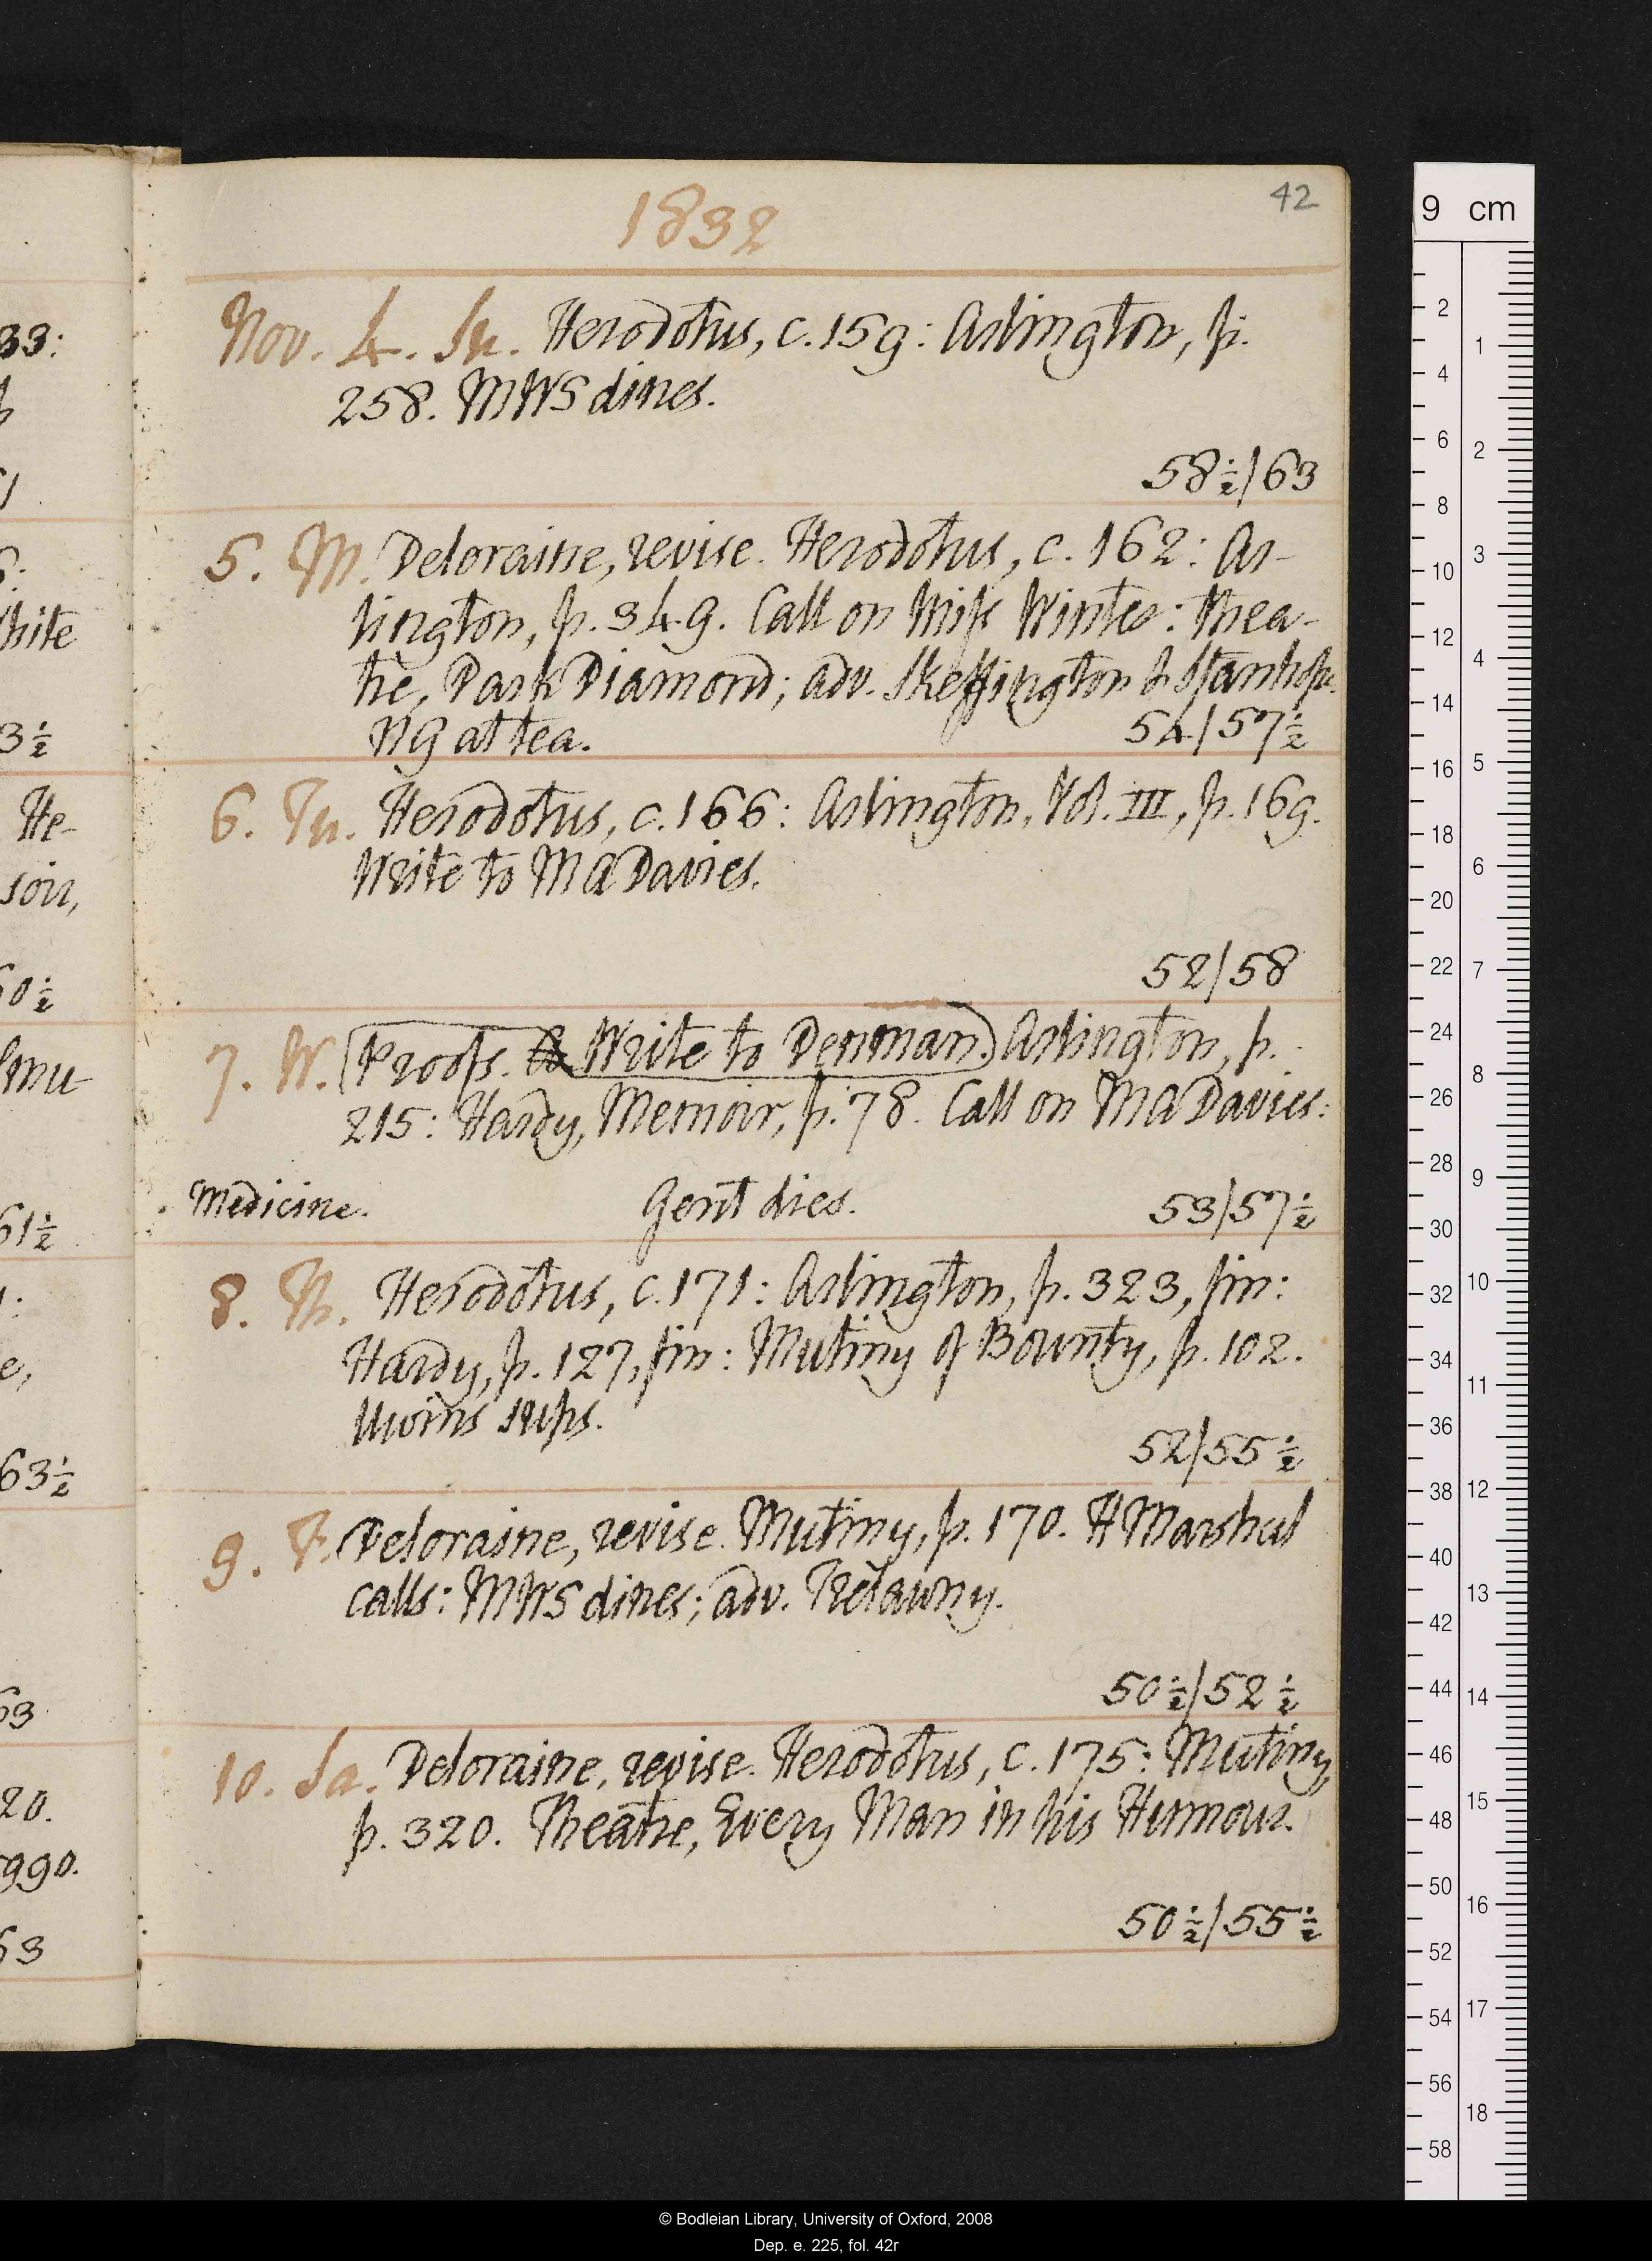 42
1832
Nov. 4. Su. Herodotus, c. 159: Arlington, p.
258. MWS dines.
58½/63
5. M. Deloraine, revise. Herodotus, c. 162: Ar-
lington, p. 349. Call on Miss Winter: thea-
tre, Dark Diamond; adv. Skeffington & Stanhope.
NG at tea. 54/57½
6. Tu. Herodotus, c. 166: Arlington, Vol. III, p. 169.
Write to MA Davies.
52/58
7. W. Proofs. Write to Denman. Arlington, p.
215: Hardy, Memoir, p. 78. Call on MA Davies:
Medicine. Gent dies. 53/57½
8. Th. Herodotus, c. 171: Arlington, p. 323, fin:
Hardy, p. 127, fin: Mutiny of Bounty, p. 102.
Uwins sups.
52/55½
9. F. Deloraine, revise. Mutiny, p. 170. H Marshal
calls: MWS dines; adv. Trelawny.
50½/52½
10. Sa. Deloraine, revise. Herodotus, c. 175: Mutiny,
p. 320. Theatre, Every Man in his Humour.
50½/55½
33:
51
White
3½
He-
soir,
60½
61½
e,
63½
63
20.
990.
63
9 cm
2 4 6 8 10 12 14 16 18 20 22 24 26 28 30 32 34 36 38 40 42 44 46 48 50 52 54 56 58
1 2 3 4 5 6 7 8 9 10 11 12 13 14 15 16 17 18
© Bodleian Library, University of Oxford, 2008
Dep. e. 225, fol. 42r